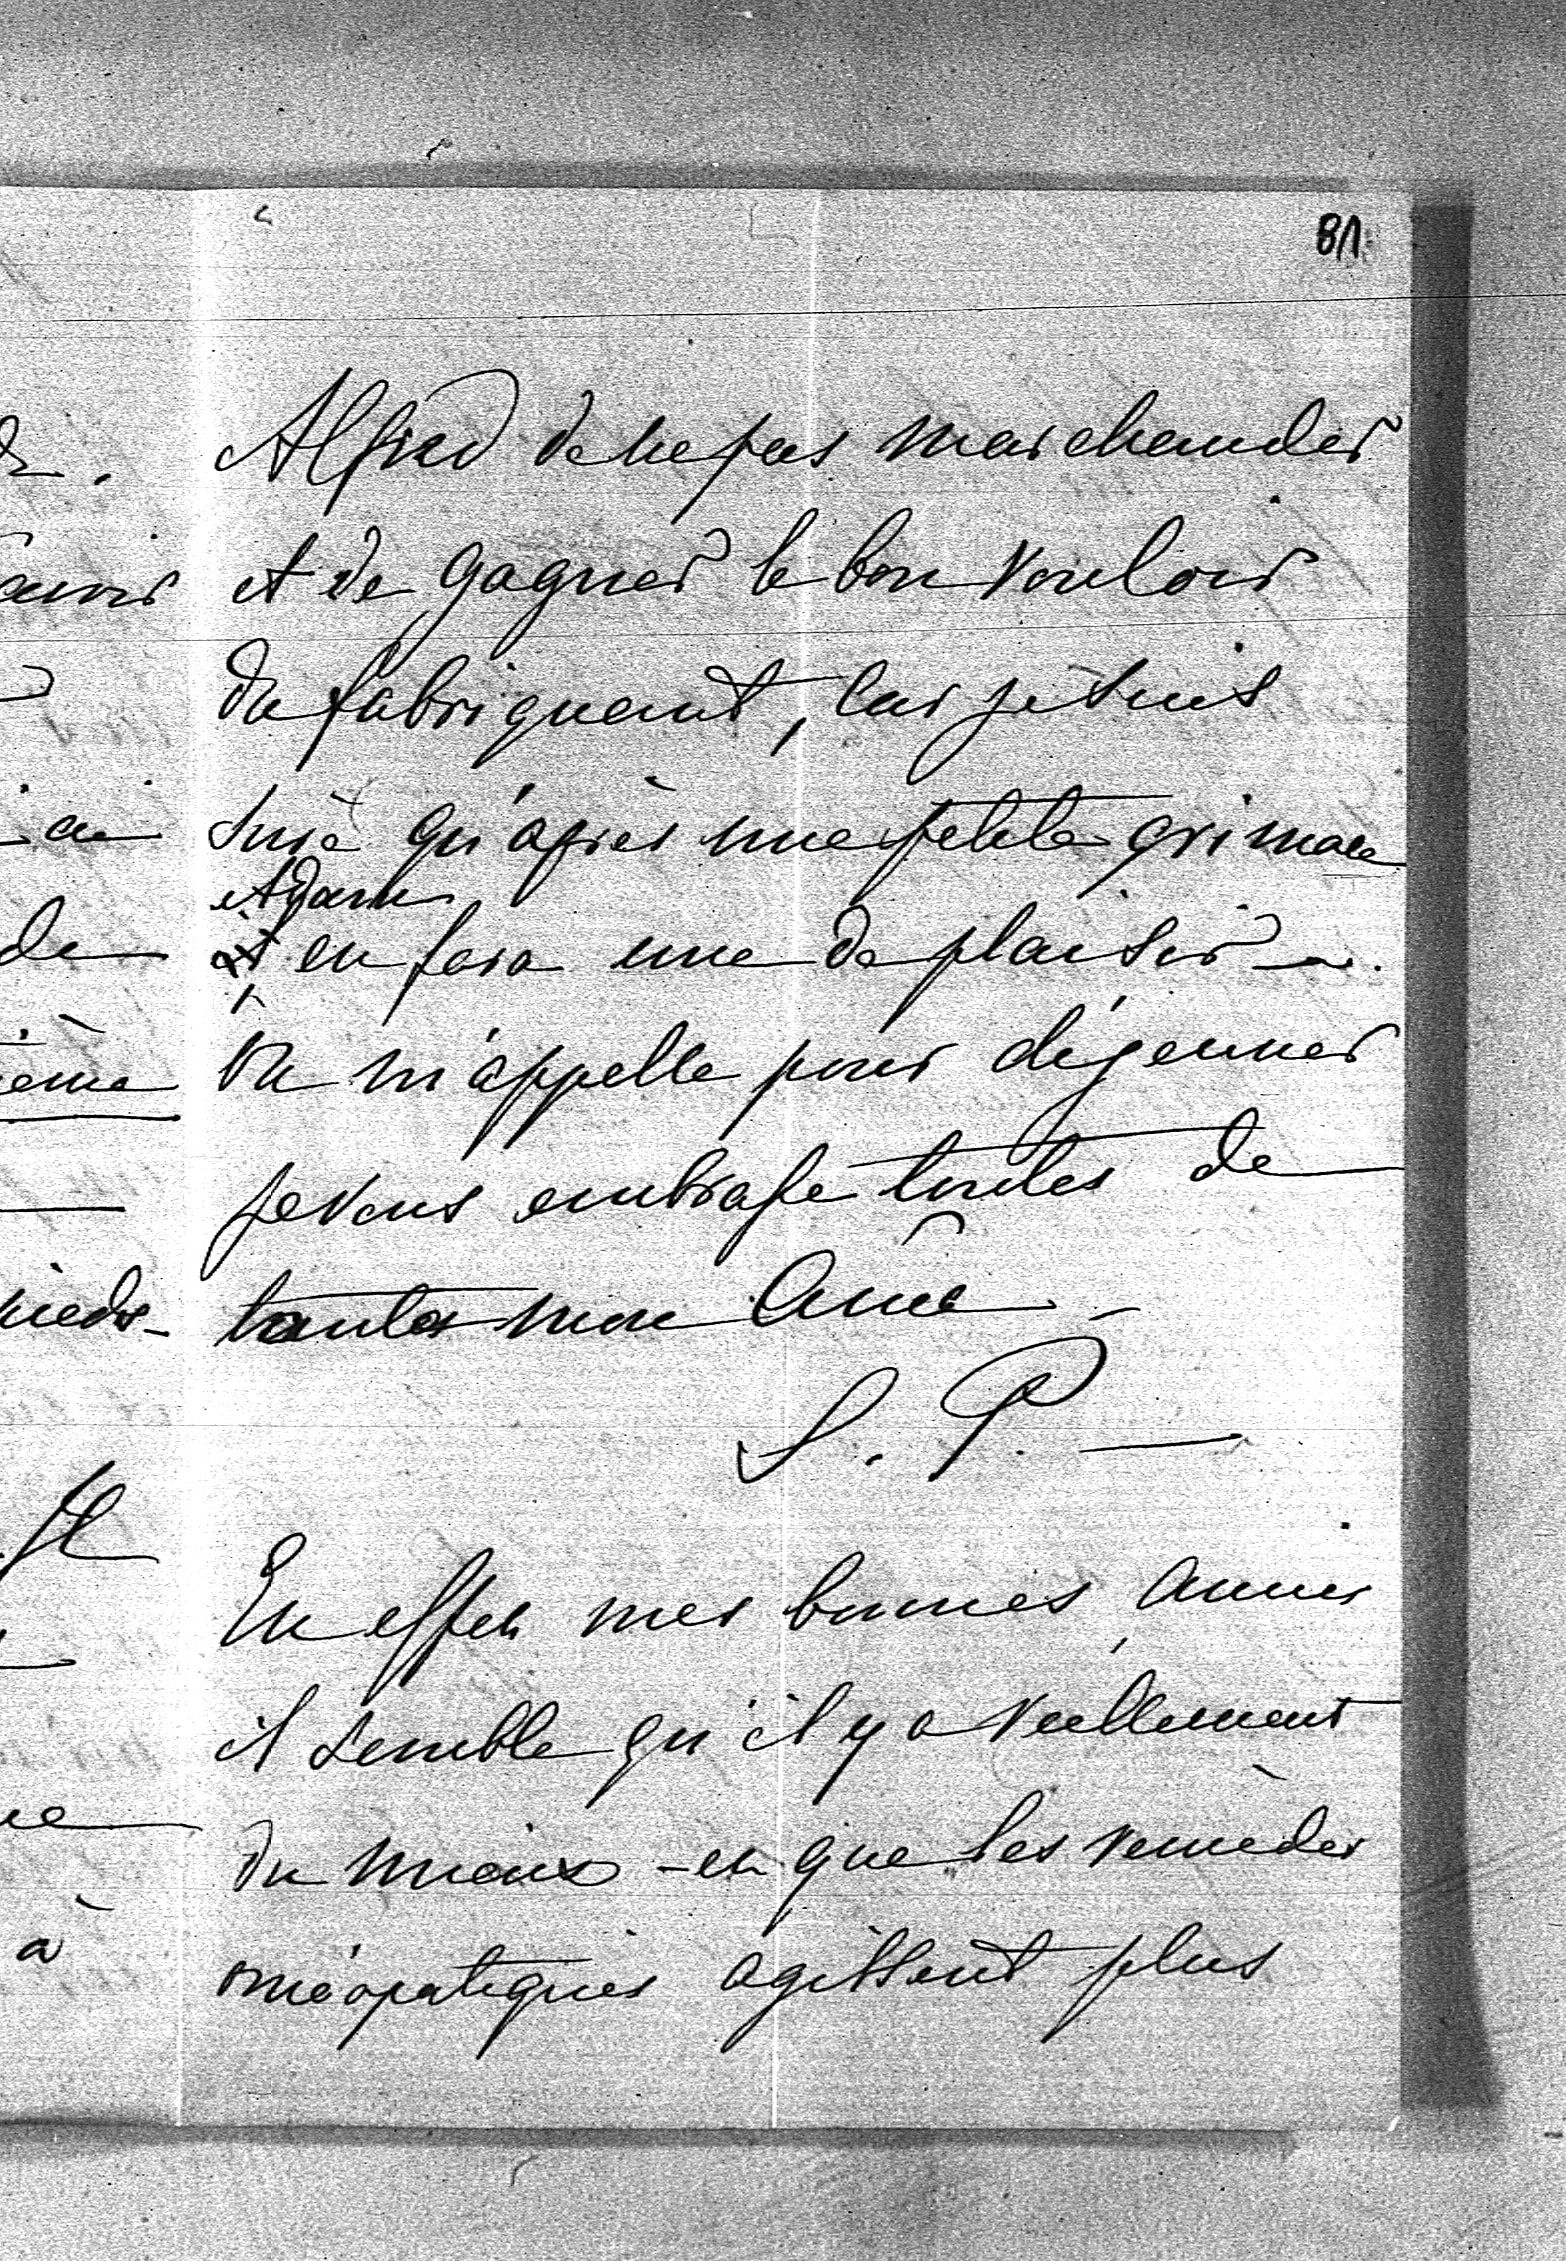 81
Alfred de ne pas marchander
et de gagner le bon vouloir
du fabriquant, car je suis
sure qu'après une petite grimace
Adam
en fera une de plaisir
On m'appelle pour déjeuner
je vous embrasse toutes de
toute mon âme
S. P.
En effet mes bonnes amies
il semble qu'il y a réellement
du mieux - et que les remèdes
oméopatiques agissent plus